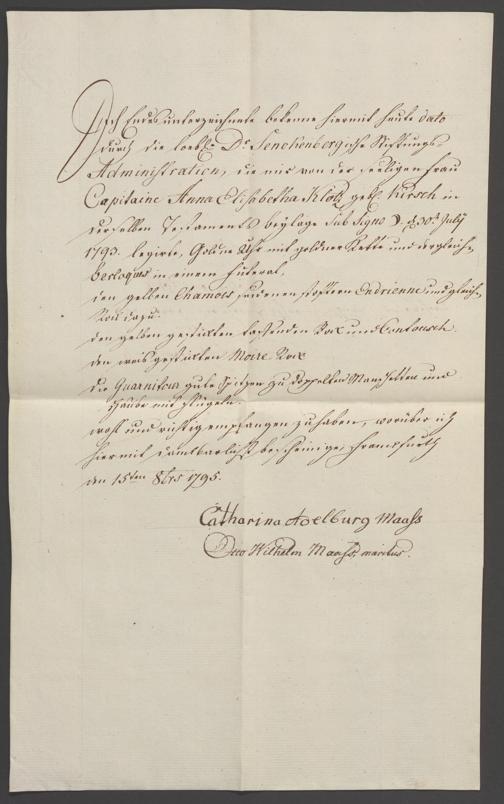 Ich Endes unterzeichnete bekenne hiermit heute dato
durch die loebl. Dr. Senckenbergische Stiftungs-
Administration, die mir von der seeligen Frau
Capitaine Anna Elisabetha Klotz geb. Kirsch in
derselben Testaments beylage sub Signo D. d. 30t. July
1793. legirte, Goldne Uhr mit goldner Kette und dergleich.
berloquis in einem futeral,
den gelben Chamois seidenen Endrienne und gleich.
Rock dazu.
den gelben gestickten Rock und Contousch.
den weis gestickten Moire Rock
die Guarnitour gute Spitzen zu doppelten Manschetten und
Haube mit flügeln.
wohl und richtig empfangen zu haben, worüber ich
hiermit danckbarlichst bescheinige, Franckfurth
den 15ten 8brs 1795.
Catharina Adelburg Maass
Otto Wilhelm Maass, maritus.